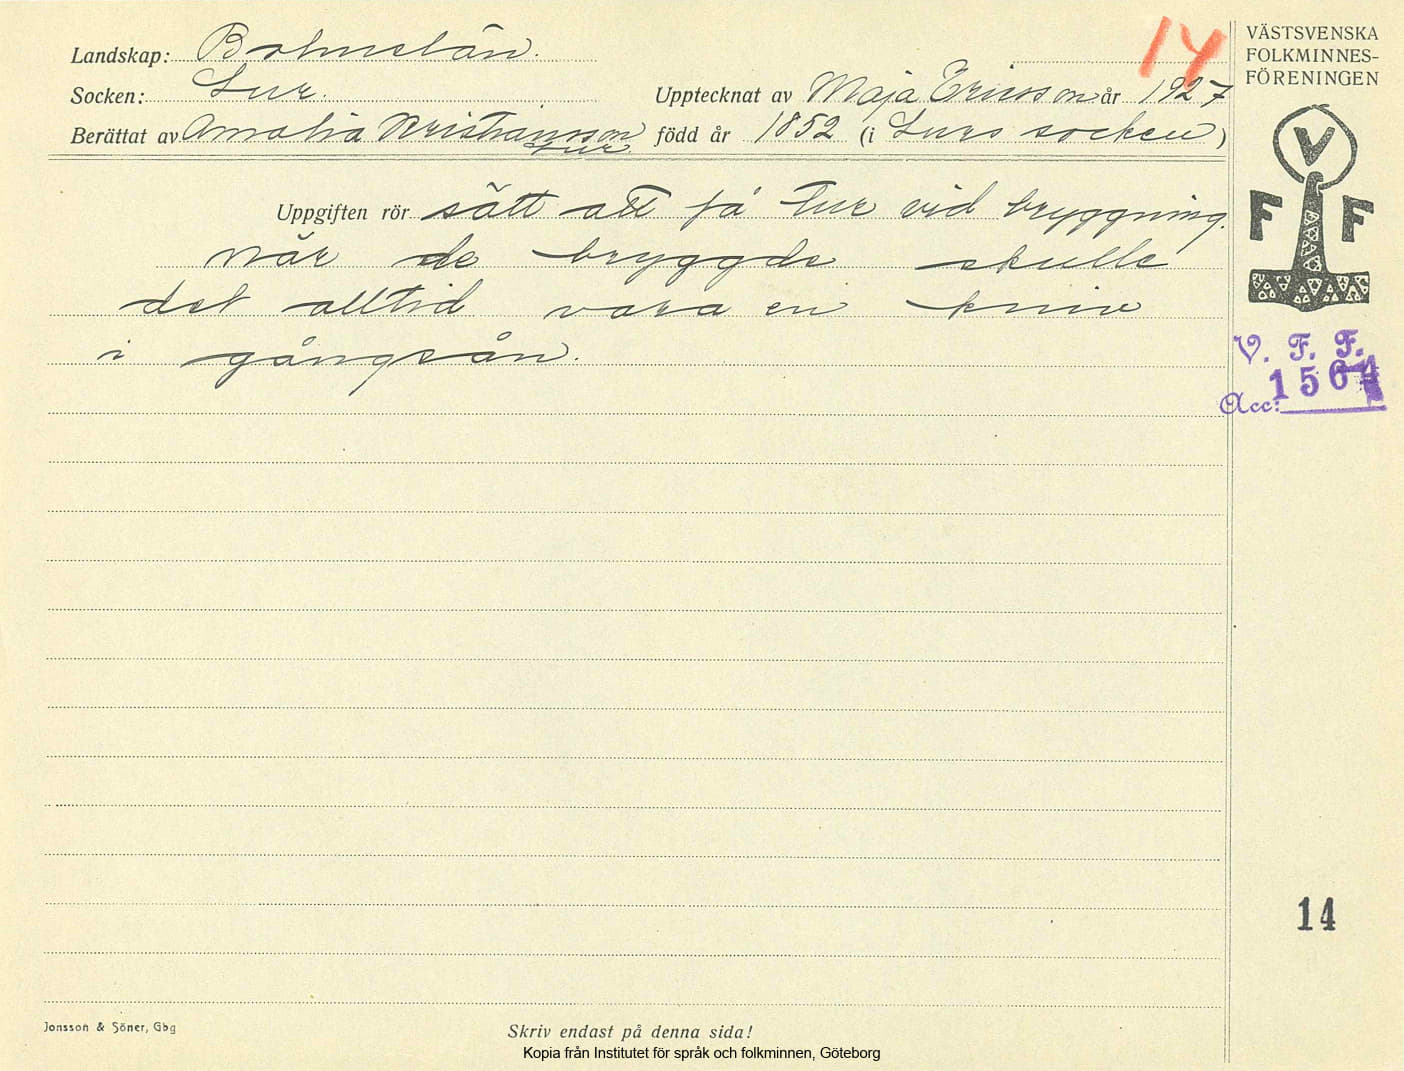 14
VÄSTSVENSKA
FOLKMINNES-
FÖRENINGEN
Landskap: Bohuslän.
Socken: Lur. Upptecknat av Maja Ericsson år 1927
Berättat av Amalia Kristiansson Lur född år 1852 (i Lurs socken)
V
F F
Uppgiften rör sätt att få tur vid bryggning.
När de bryggde skulle
det alltid vara en kniv
i gångsån.
V. F. F.
Acc: 1564
14
Jonsson & Söner, Gbg
Skriv endast på denna sida!
Kopia från Institutet för språk och folkminnen, Göteborg